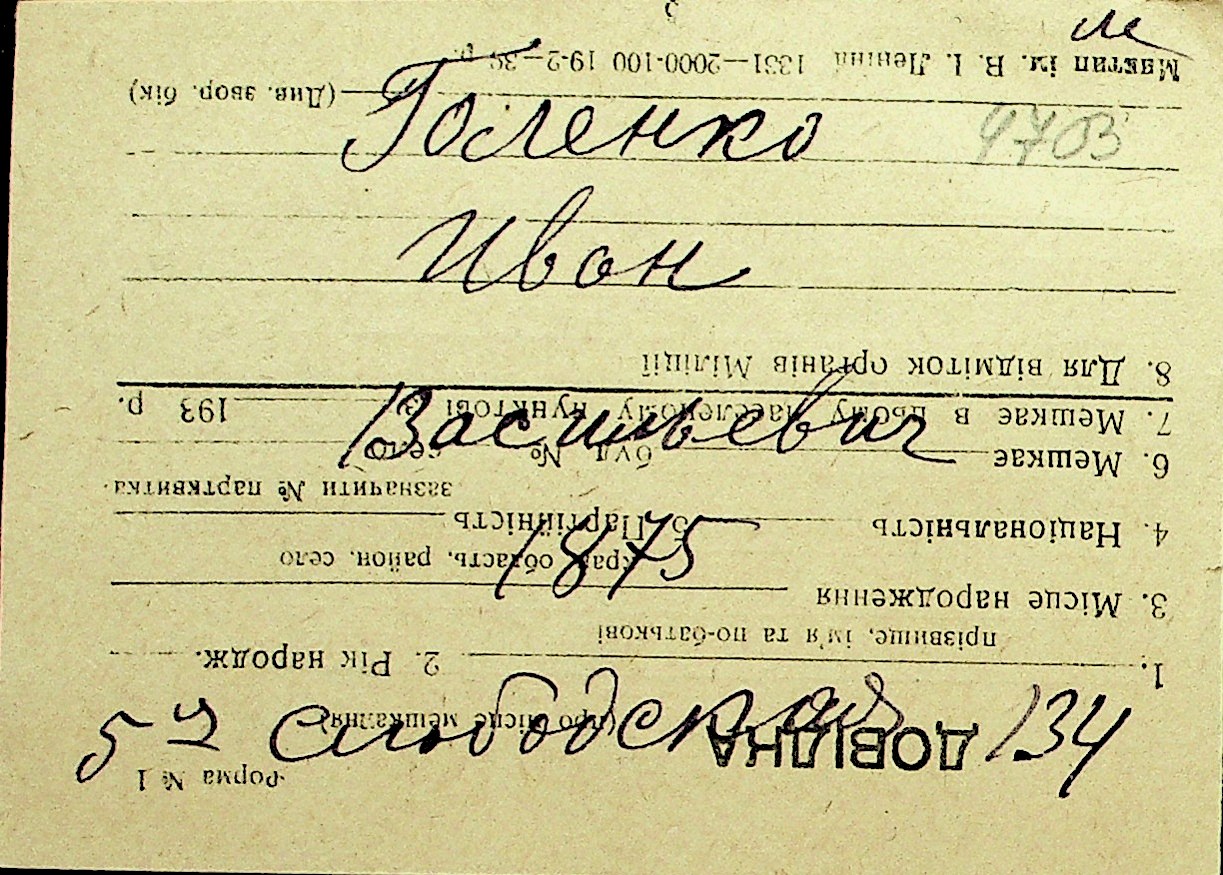 ле
Голенко
9703
Иван
Васильевич
1875
5 я слободская 134
Форма № 1
ДОВІДКА
(про місце мешкання)
1. 2. Рік народж.
прізвище, ім'я та по-батькові
3. Місце народження
край, область, район, село
4. Національність 5 Партійність
зазначити № партквитка
6. Мешкає буд № село
7. Мешкає в цьому населеному пункті з 193 р.
8. Для відміток органів Міліції
(Див. звор. бік)
ім. В. І. Леніна 1331—2000-100 19-2—39 р.